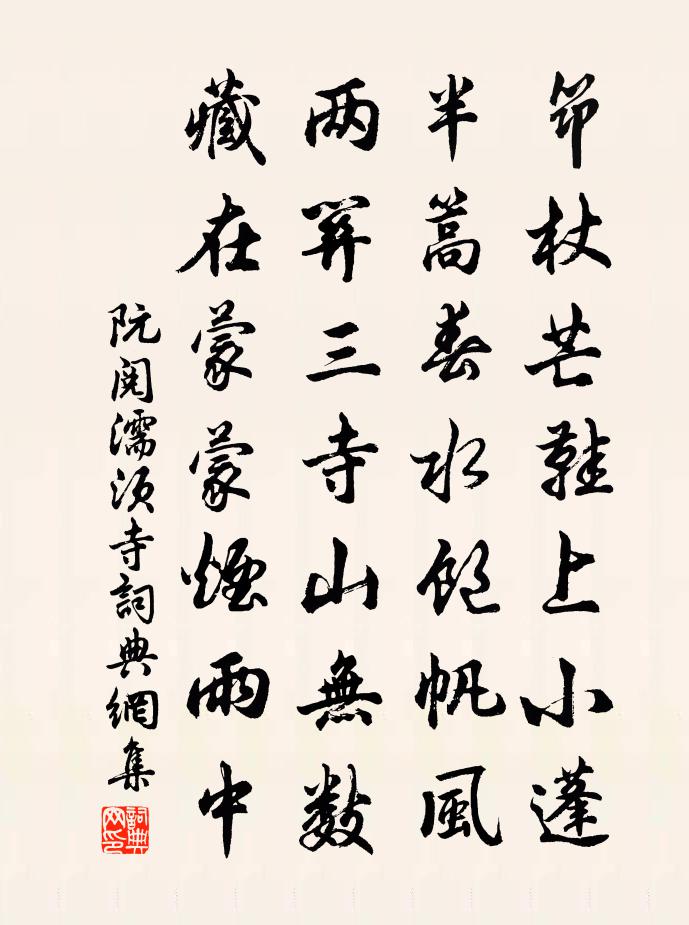 筇杖芒鞋上小蓬
半篙春水飽帆風
两關三寺山無數
藏在蒙蒙煙雨中
阮閱濡須寺詞典網集
詞典网印